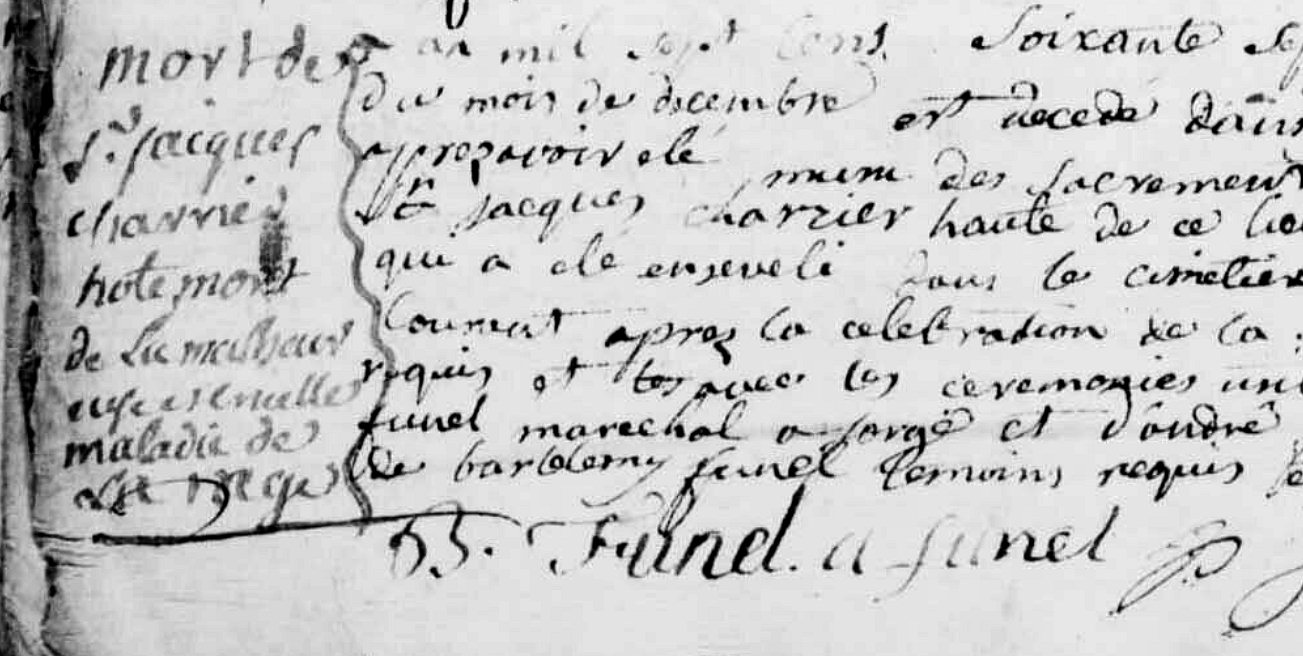 mort de
Sr. jacques
charrier
hote mort
de La malheur
euse et cruelle
maladie de
La rage
an mil sept cens soixante sep
du mois de decembre est decedé dans
apprez avoir eté muni des sacremen
Sr jacques charrier haute de ce lieu
qui a eté enseveli dans le cimetier
courant aprez la celebration de la
requis et avec les ceremonies
funel marechal a forge et d'andré
de bartelemy funel temoins requis
B. Funel. a funel